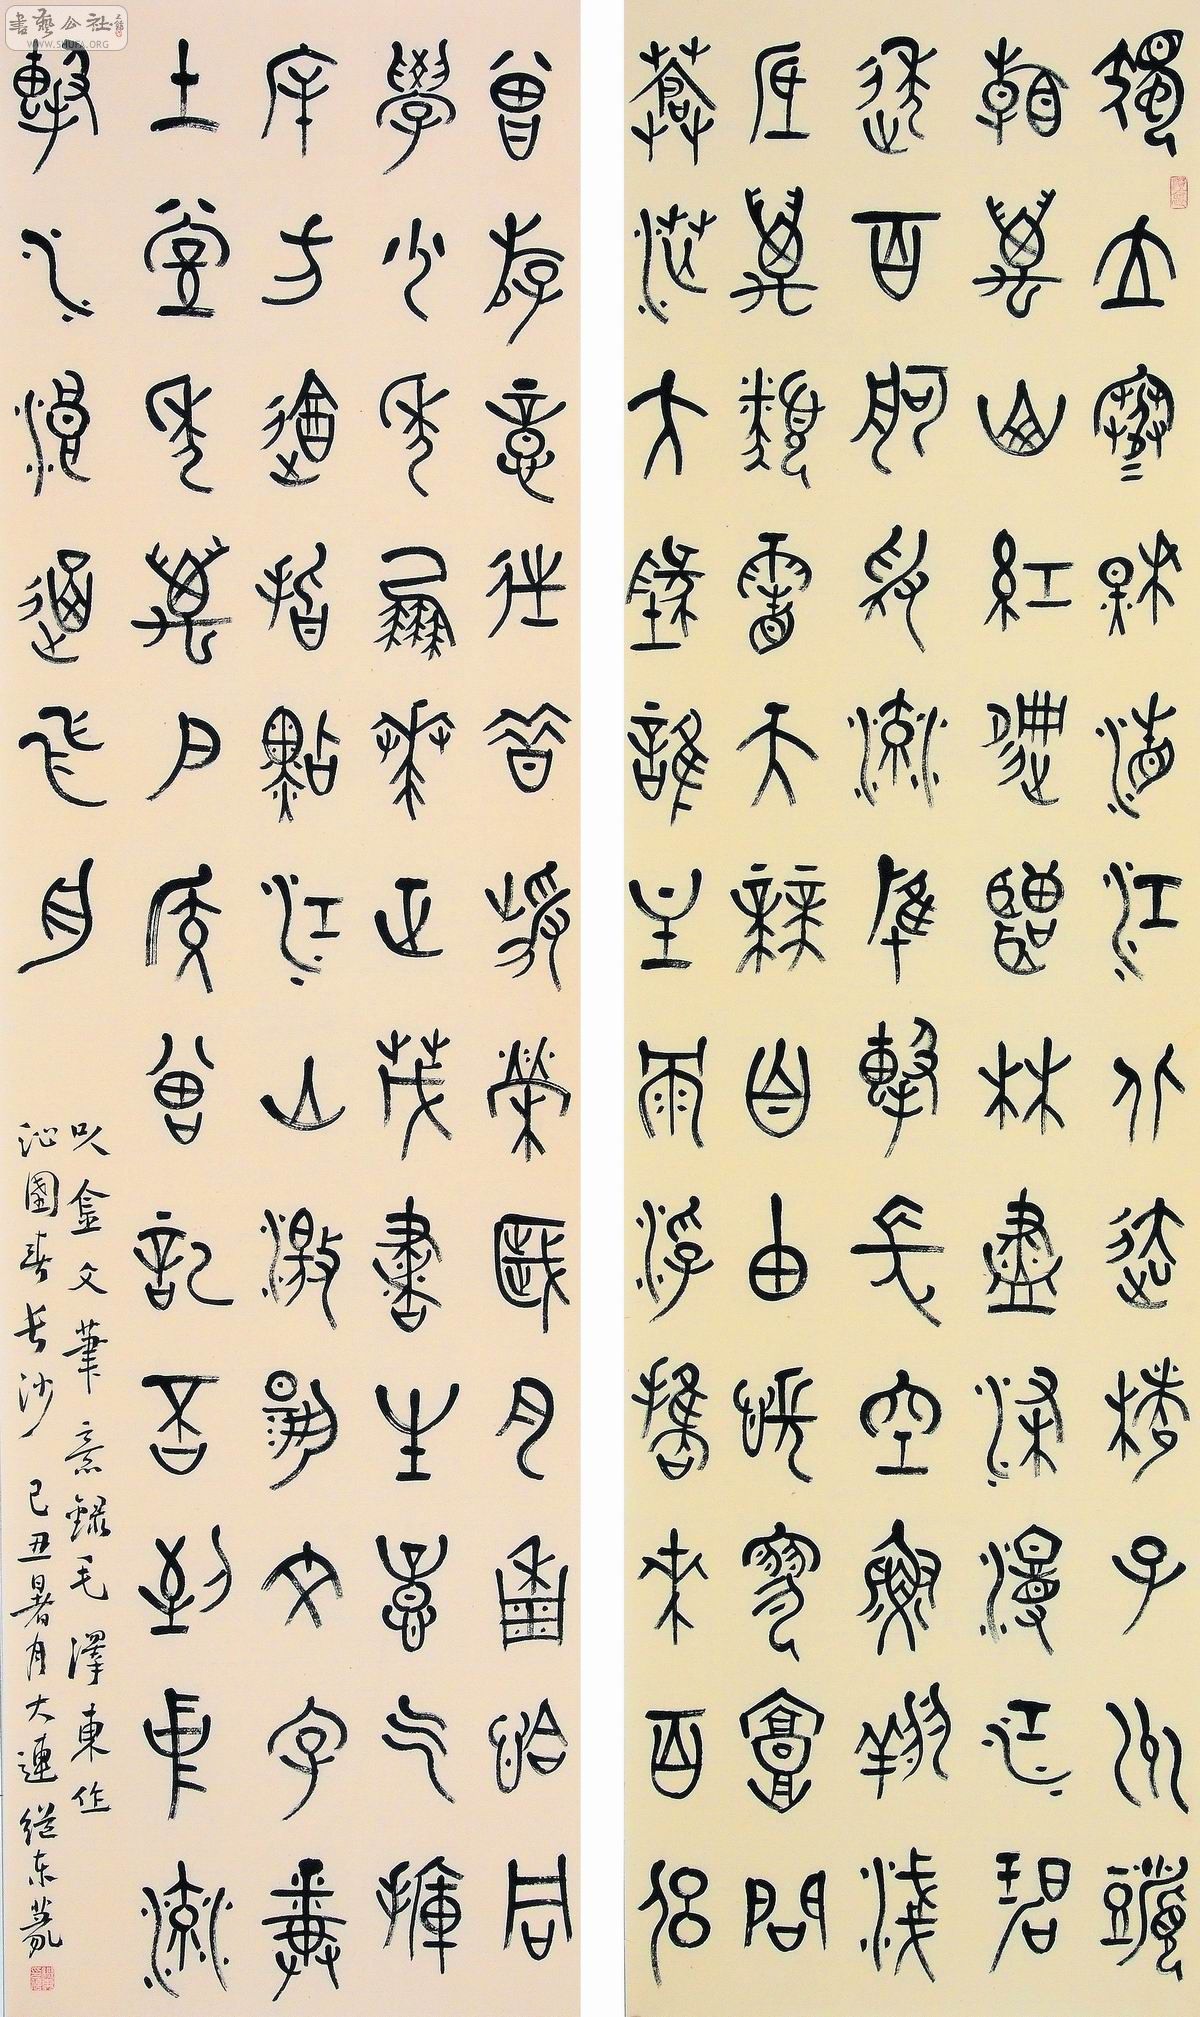 獨立寒秋湘江北去橘子洲頭
看萬山紅遍層林盡染漫江碧
透百舸爭流鷹擊長空魚翔淺
底萬類霜天競自由悵寥廓問
蒼茫大地誰主沉浮攜來百侶
曾游憶往昔崢嶸歲月稠恰同
學少年風華正茂書生意氣揮
斥方遒指點江山激揚文字糞
土當年萬戶侯曾記否到中流
擊水浪遏飛舟
以金文筆意錄毛澤東作
沁園春長沙 己丑暑月大連
書藝公社
WWW.SHUFA.ORG